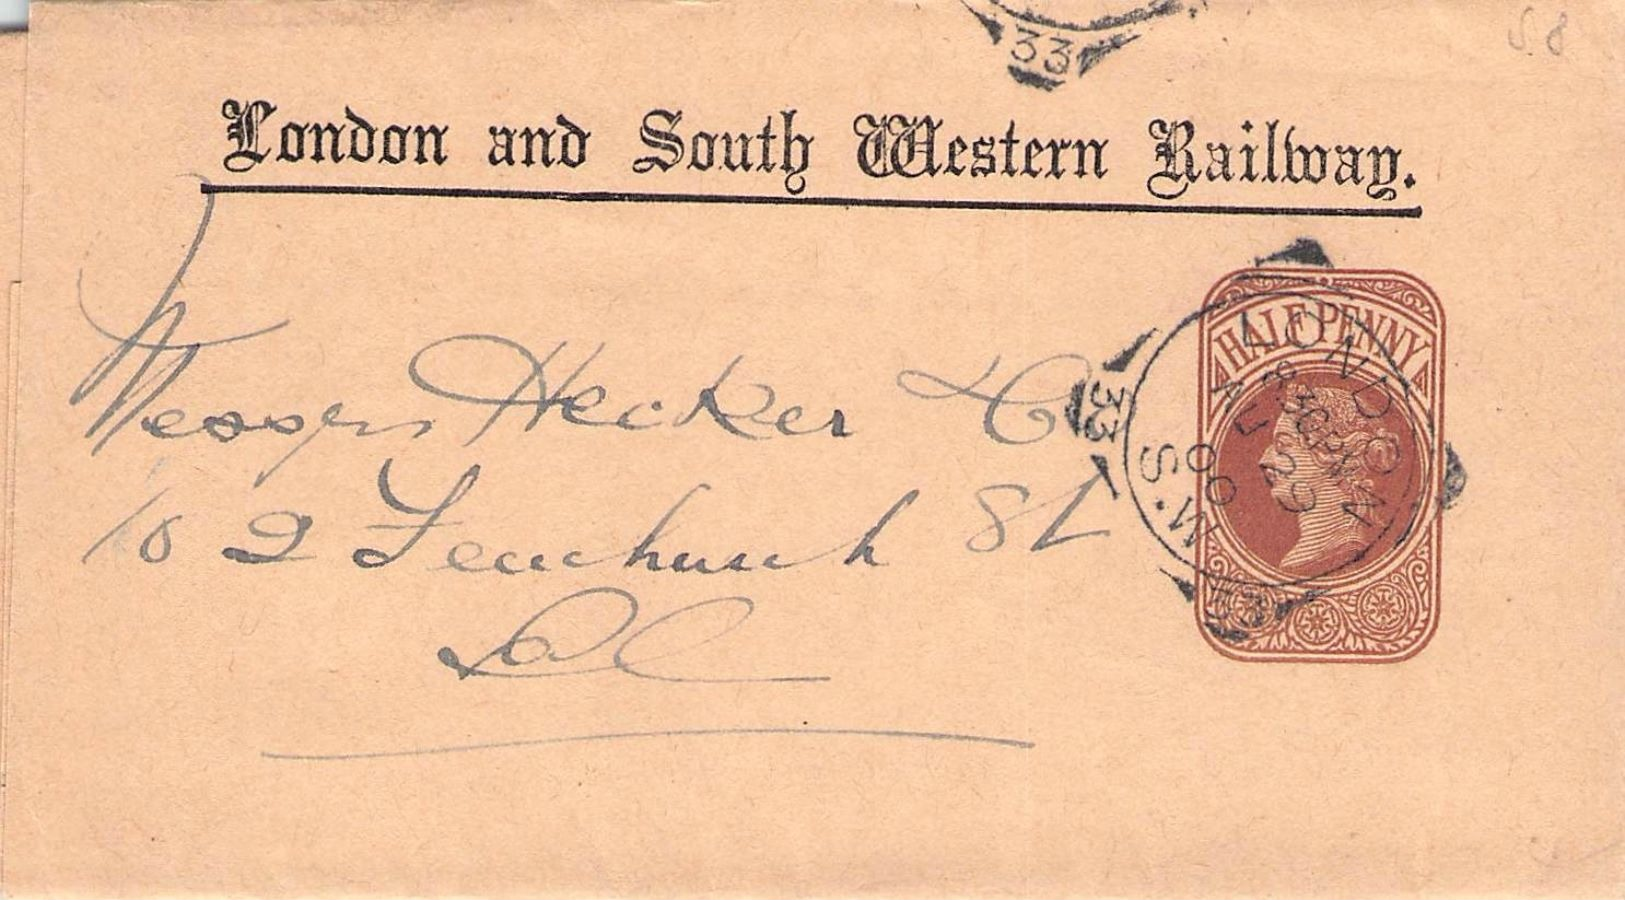 33
S.8
London and South Western Railway.
HALFPENNY
LONDON
M.S
8.30PM
AU 29
00
33
Messrs Hecker & Co
102 Fenchurch St
EC